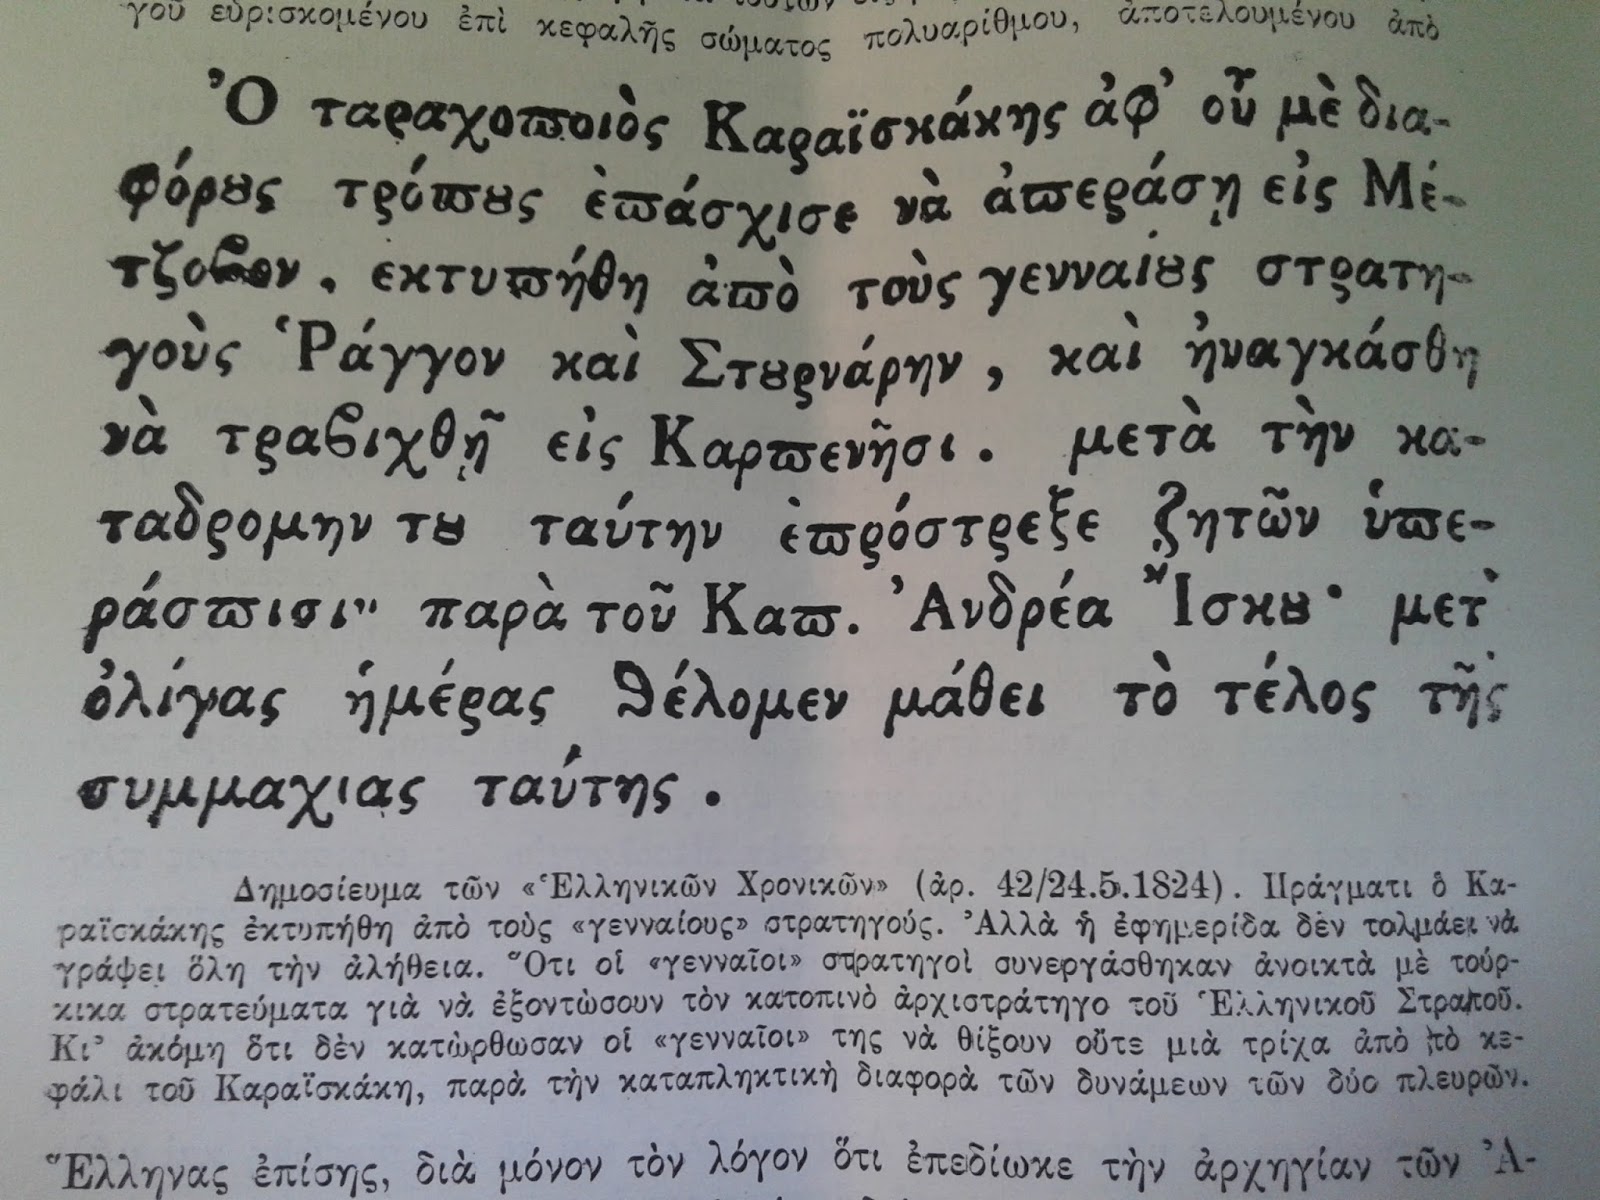 γοῦ εὑρισκομένου ἐπὶ κεφαλῆς σώματος πολυαρίθμου, ἀποτελουμένου ἀπὸ
Ὁ ταραχοϖοιὸς Καραϊσκάκης ἀφ' οὗ μὲ δια-
φόρȣς τρόϖȣς ἐϖάσχισε νὰ ἀϖεράσῃ εἰς Μέ-
τζοϐον, εκτυϖήθη ἀϖὸ τοὺς γενναίȣς στρατη-
γοὺς Ῥάγγον καὶ Στȣρνάρην, καὶ ἠναγκάσθη
νὰ τραϐιχθῇ εἰς Καρϖενῆσι. μετὰ τὴν κα-
ταδρομην τȣ ταύτην ἐϖρόστρεξε ζητῶν ὑϖε-
ράσϖισιν παρὰ τοῦ Καϖ. Ἀνδρέα Ἴσκȣ· μετ'
ὀλίγας ἡμέρας ϑέλομεν μάθει τὸ τέλος τῆς
συμμαχιας ταύτης.
Δημοσίευμα τῶν «Ἑλληνικῶν Χρονικῶν» (ἀρ. 42/24.5.1824). Πράγματι ὁ Κα-
ραϊσκάκης ἐκτυπήθη ἀπὸ τοὺς «γενναίους» στρατηγούς. Ἀλλὰ ἡ ἐφημερίδα δὲν τολμάει νὰ
γράψει ὅλη τὴν ἀλήθεια. Ὅτι οἱ «γενναῖοι» στρατηγοὶ συνεργάσθηκαν ἀνοικτὰ μὲ τούρ-
κικα στρατεύματα γιὰ νὰ ἐξοντώσουν τὸν κατοπινὸ ἀρχιστράτηγο τοῦ Ἑλληνικοῦ Στρατοῦ.
Κι' ἀκόμη ὅτι δὲν κατώρθωσαν οἱ «γενναῖοι» της νὰ θίξουν οὔτε μιὰ τρίχα ἀπὸ τὸ κε-
φάλι τοῦ Καραϊσκάκη, παρὰ τὴν καταπληκτικὴ διαφορὰ τῶν δυνάμεων τῶν δύο πλευρῶν.
Ἕλληνας ἐπίσης, διὰ μόνον τὸν λόγον ὅτι ἐπεδίωκε τὴν ἀρχηγίαν τῶν Ἀ-